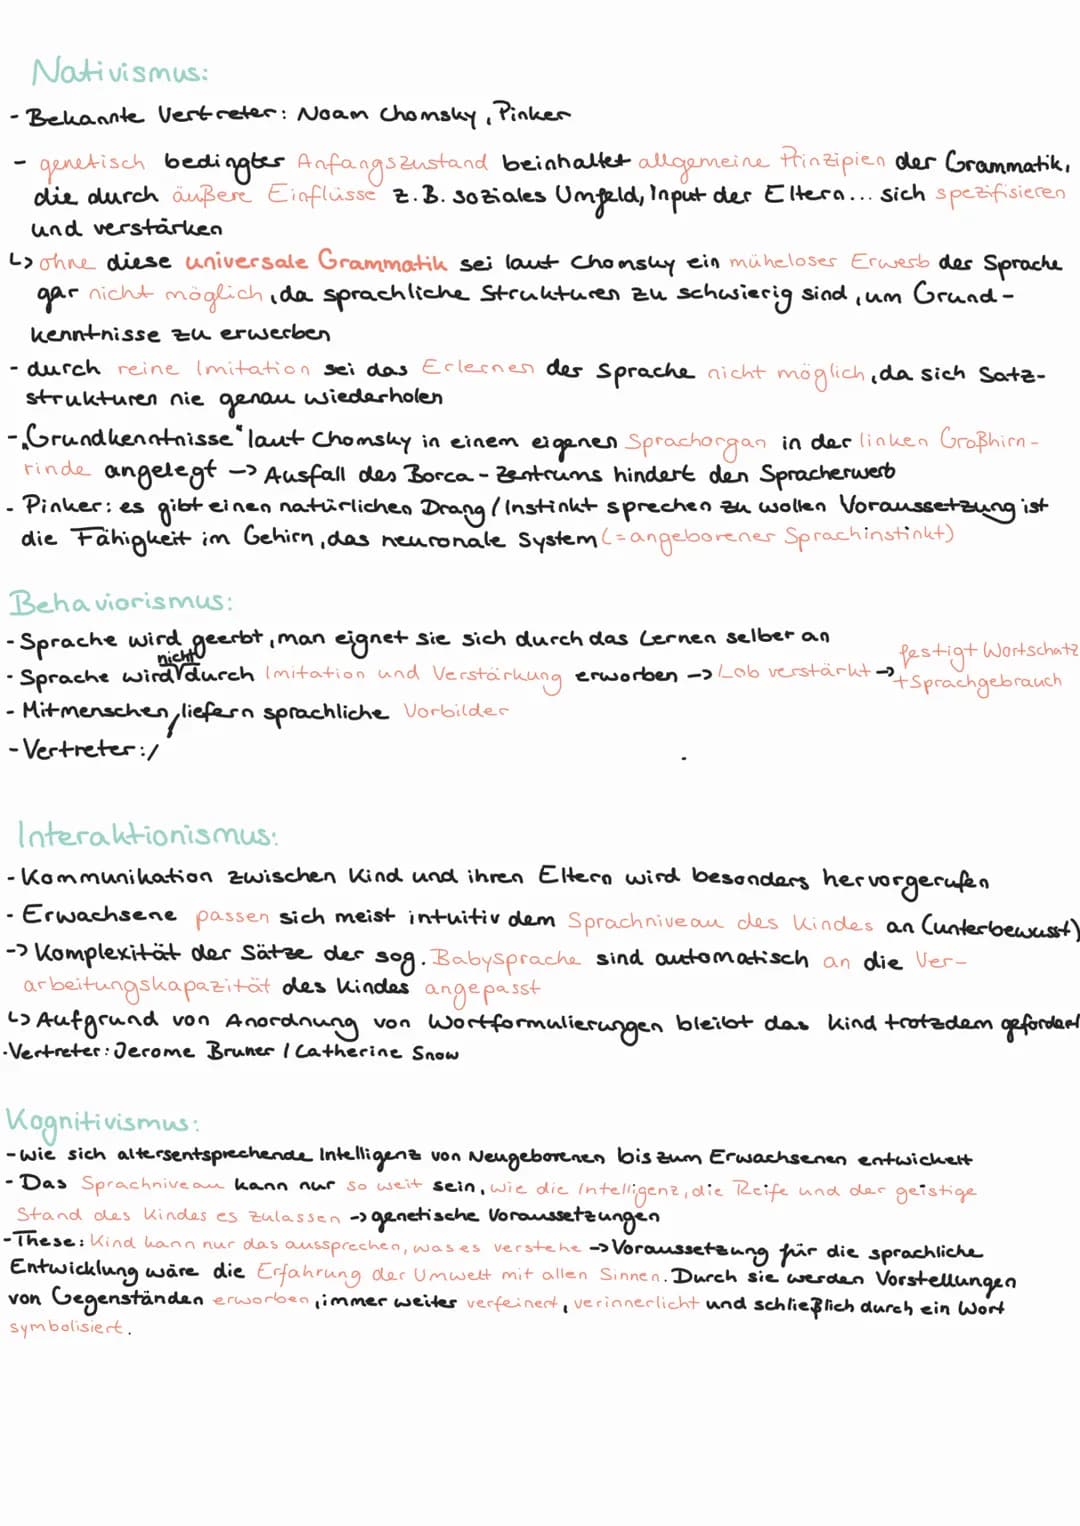 Nativismus:
- Bekannte Vertreter: Noam Chomsky, Pinker
- genetisch bedingter Anfangszustand beinhaltet allgemeine Prinzipien der Grammatik,
die durch äußere Einflüsse z.B. soziales Umfeld, Input der Eltern... sich spezifisieren
und verstärken
↳ ohne diese universale Grammatik sei laut Chomsky ein müheloser Erwerb der Sprache
gar nicht möglich, da sprachliche Strukturen zu schwierig sind, um Grund-
kenntnisse zu erwerben
- durch reine Imitation sei das Erlernen der Sprache nicht möglich, da sich Satz-
strukturen nie genau wiederholen
- „Grundkenntnisse" laut Chomsky in einem eigenen Sprachorgan in der linken Großhirn-
rinde angelegt -> Ausfall des Borca-Zentrums hindert den Spracherwerb
- Pinker: es gibt einen natürlichen Drang / Instinkt sprechen zu wollen Voraussetzung ist
die Fähigkeit im Gehirn, das neuronale System (= angeborener Sprachinstinkt)
Behaviorismus:
- Sprache wird geerbt, man eignet sie sich durch das Lernen selber an
nicht
- Sprache wird durch Imitation und Verstärkung erworben -> Lob verstärkt -> festigt Wortschatz
+ Sprachgebrauch
- Mitmenschen liefern sprachliche Vorbilder
- Vertreter: /
Interaktionismus:
- Kommunikation zwischen Kind und ihren Eltern wird besonders hervorgerufen
- Erwachsene passen sich meist intuitiv dem Sprachniveau des Kindes an (unterbewusst)
-> Komplexität der Sätze der sog. Babysprache sind automatisch an die Ver-
arbeitungskapazität des Kindes angepasst
↳ Aufgrund von Anordnung von Wortformulierungen bleibt das Kind trotzdem gefordert
- Vertreter: Jerome Bruner / Catherine Snow
Kognitivismus:
- wie sich altersentsprechende Intelligenz von Neugeborenen bis zum Erwachsenen entwickelt
- Das Sprachniveau kann nur so weit sein, wie die Intelligenz, die Reife und der geistige
Stand des Kindes es zulassen -> genetische Voraussetzungen
- These: Kind kann nur das aussprechen, was es verstehe -> Voraussetzung für die sprachliche
Entwicklung wäre die Erfahrung der Umwelt mit allen Sinnen. Durch sie werden Vorstellungen
von Gegenständen erworben, immer weiter verfeinert, verinnerlicht und schließlich durch ein Wort
symbolisiert.